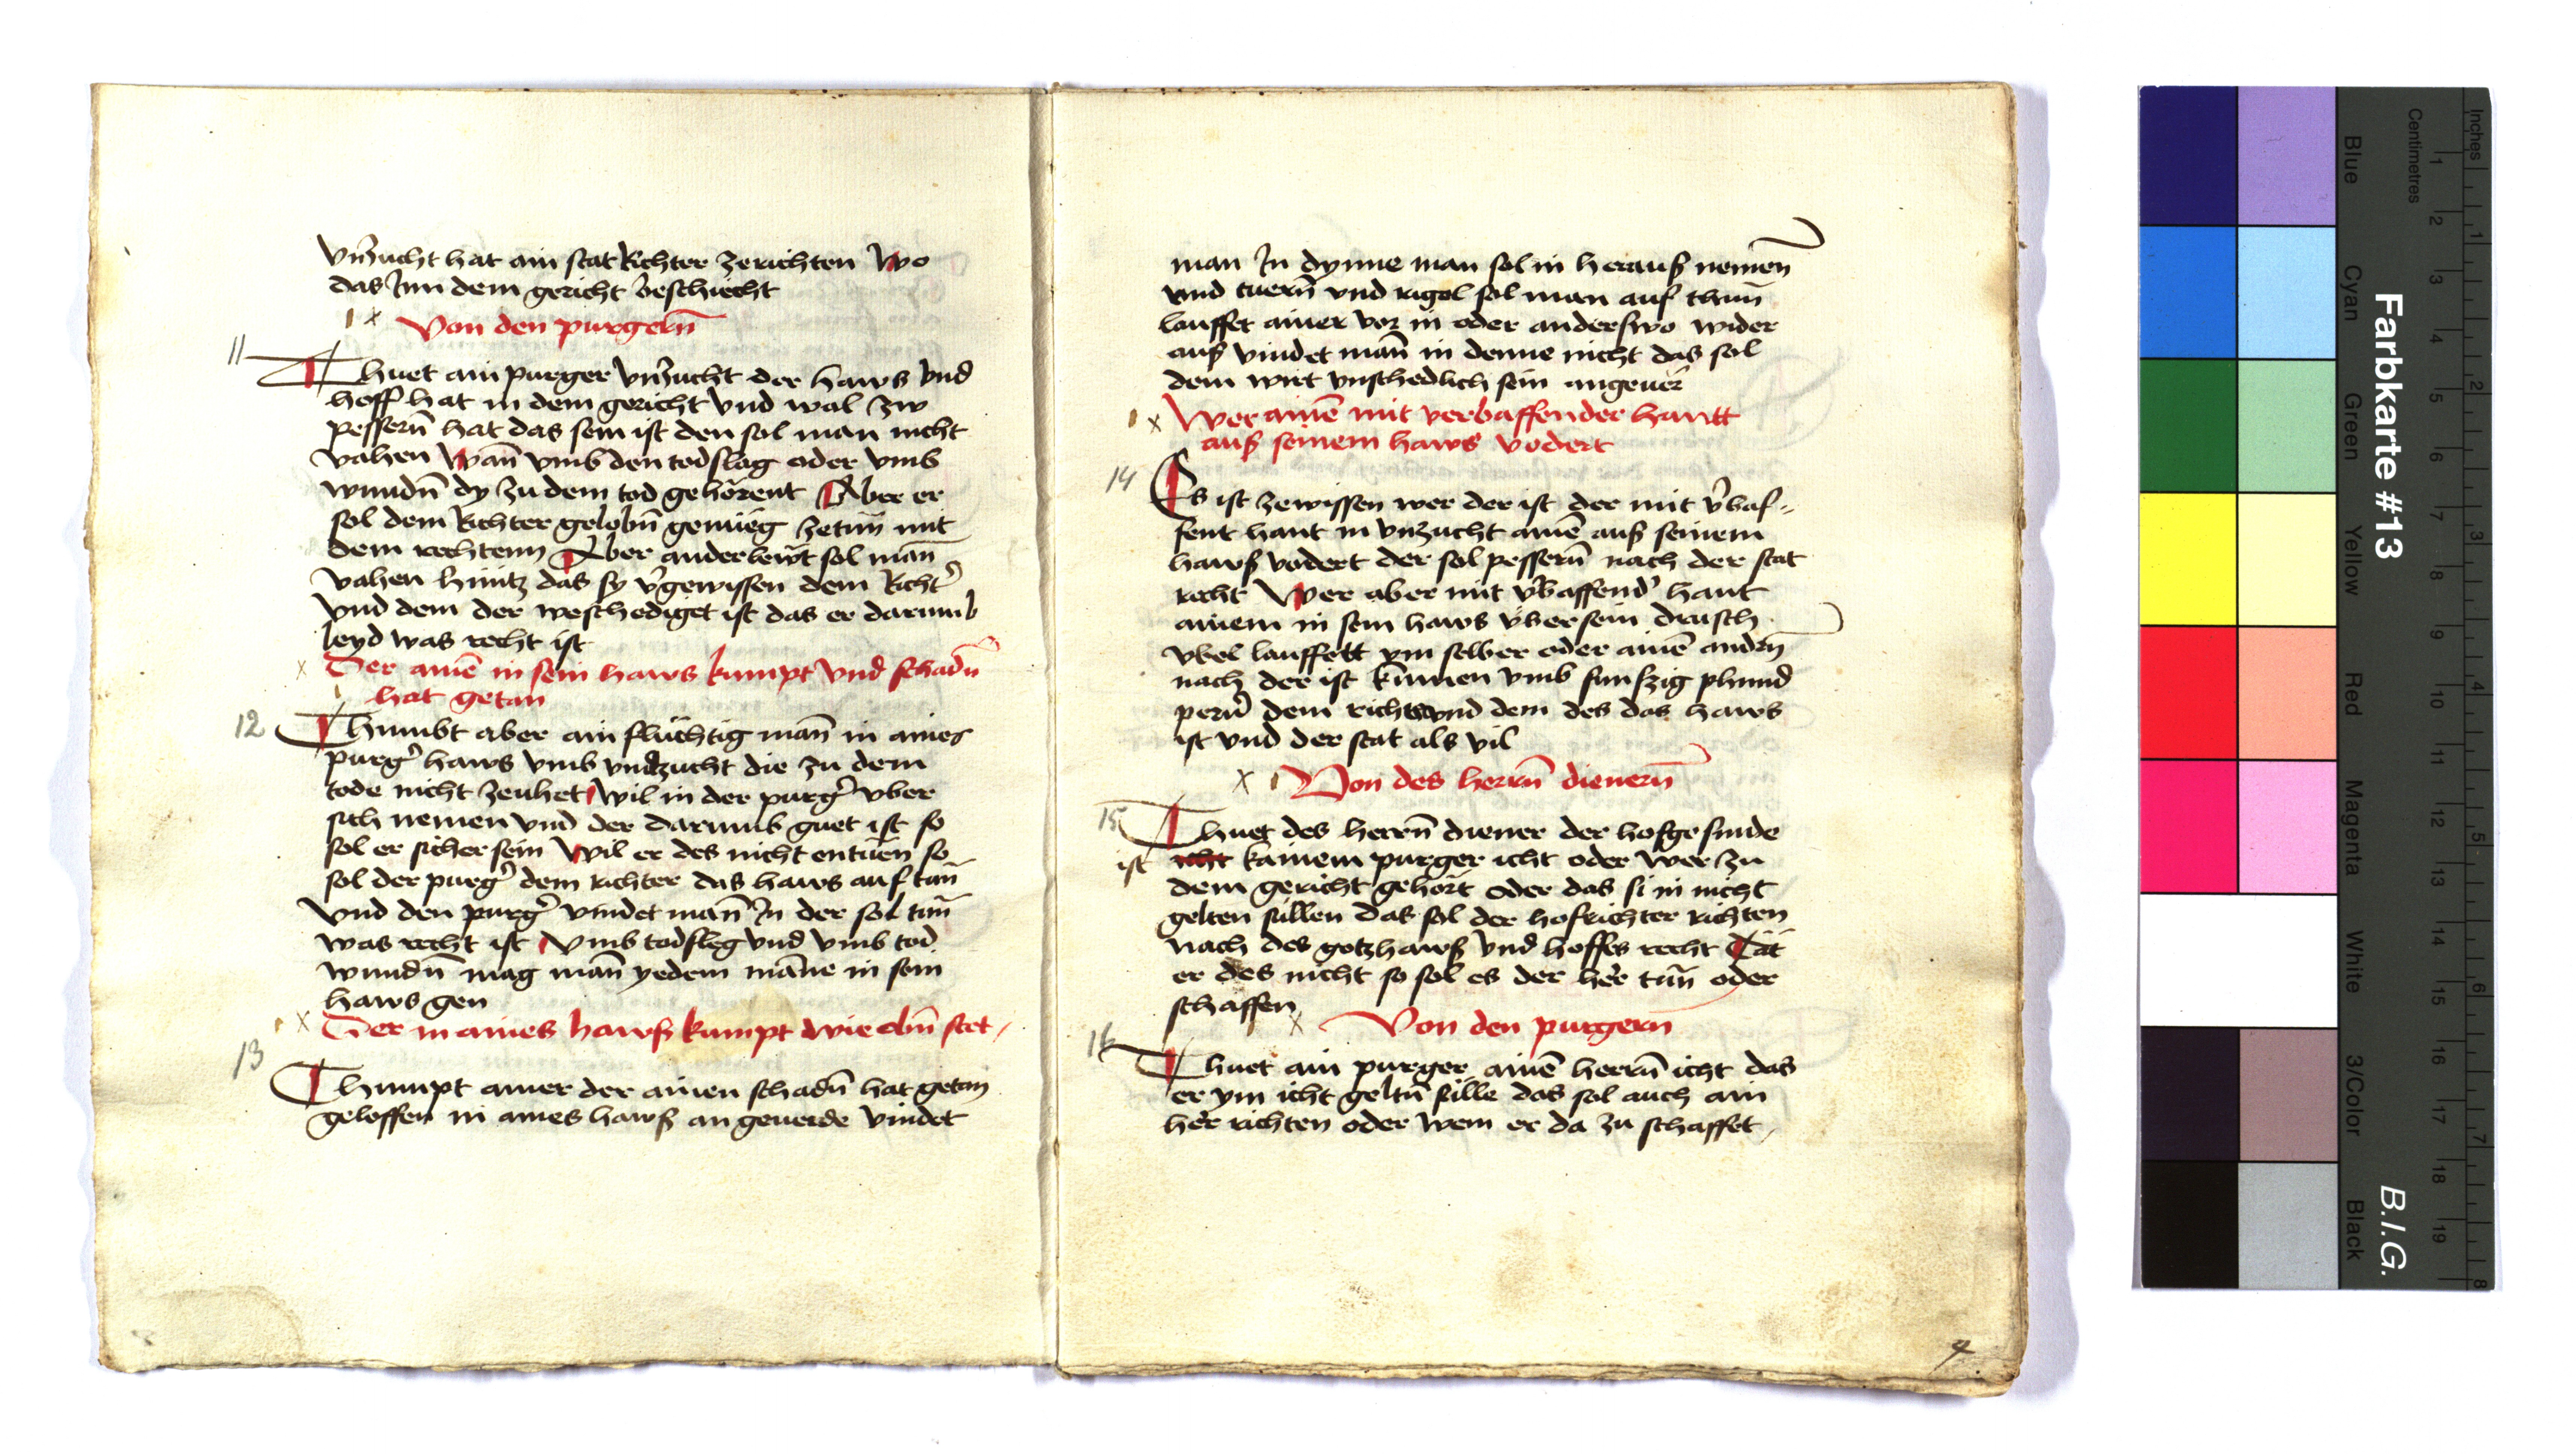 vnzucht hat ain stat Richter zerichten Wo
das Inn dem gericht beschiecht
Von den purgern̄
11
Thuet ain purger vnzucht der haws vnd
hoff hat in dem gericht vnd wal zw
pessern̄ hat das sein ist den sol man nicht
vahen Wan̄ vmb den todslag oder vmb
wundn̄ dy zu dem tod gehörent Aber er
sol dem Richter gelobn̄ genueg zetun̄ mit
dem rechtenn Aber ander lewt sol man̄
vahen hintz das sy v̉gewissen dem Richt̉
vnd dem der weschediget ist das er darumb
leyd was recht ist
Der ainē in sein haws kumpt vnd schadn̄
hat getan
12
Khumbt aber ain fluchtig man̄ in aines
purg̉ haws vmb vnzucht die zu dem
tode nicht zeuhet wil in der purg̉ vber
sich nemen vnd der darumb guet ist so
sol er sicher sein Wil er des nicht entuen so
sol der purg̉ dem richter das haws auf tun̄
vnd den purg̉ vindet man̄ In der sol tun̄
was recht ist vmb todsleg vnd vmb tod
wundn̄ mag man̄ yedem māne in sein
haws gen
Der in aines hawß kumpt wie obn̄ stet
13
Khumpt ainer der ainen schadn̄ hat getan
geloffen in aines hawß an geuerde vindet
man In dynne man sol in herauß nemen̄
vnd tuern̄ vnd rigel sol man auf thun̄
lauffet ainer vor in oder anderswo wider
auß vindet man̄ in denne nicht das sol
dem wirt vnschedlich sein ungeuer̄
Wer ainē mit verbaffender hantt
auß seinem haws vodert
14
Es ist zewissen wer der ist der mit v̉baf-
fent hant in vnzucht ainē auß seinem
hawß vodert der sol pessern̄ nach der stat
recht Wer aber mit v̉baffend̉ hant
ainem in sein haws vber sein drisch
vbel lauffett ym selber oder ainē andn̄
nach der ist kumen vmb funfzig phund
pern̉ dem richt̉ vnd dem des das haws
ist vnd der stat als vil
Von des herrn̄ dienern̄
15
Thuet des herrn̄ diener der hofgesinde
ist icht kainem purger icht oder wer zu
dem gericht gehört oder das si in nicht
gelten sullen das sol der hofrichter richten
nach des gotzhawß vnd hoffes recht Tät
er des nicht so sol es der her̉ tun̄ oder
schaffen
Von den purgern
16
Thuet ain purger ainē herrn̄ icht das
er ym icht geltn̄ sulle das sol auch ain
her̉ richten oder wem er da zu schaffet
4
Farbkarte #13
B.I.G.
Inches
Centimetres
1 2 3 4 5 6 7 8 9 10 11 12 13 14 15 16 17 18 19
1 2 3 4 5 6 7 8
Blue
Cyan
Green
Yellow
Red
Magenta
White
3/Color
Black